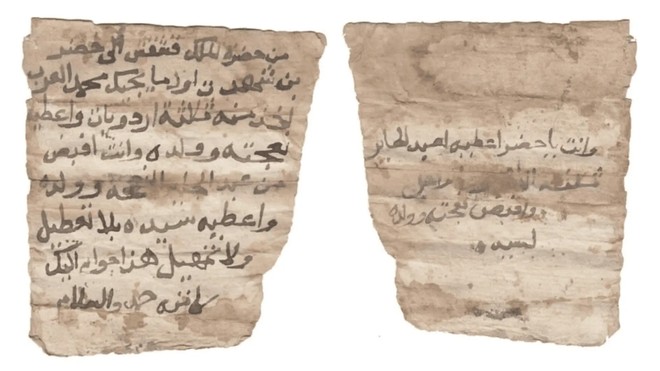 من حضرة الملك قشقش الى خضر
بن شهد ان اول ما يجيك محمد العرب
اخذ منه ثلثة اردويات واعطيه
نعجته وولده وانت اقبض
من عبد النعجه وولده
واعطيه سيده بلا تعطيل
ولا تمهيل هذا جوابى اليك
والسلام
وانت يا خضر اعطيه اصيد الجابر
واقبض نعجته وولده
لسيده